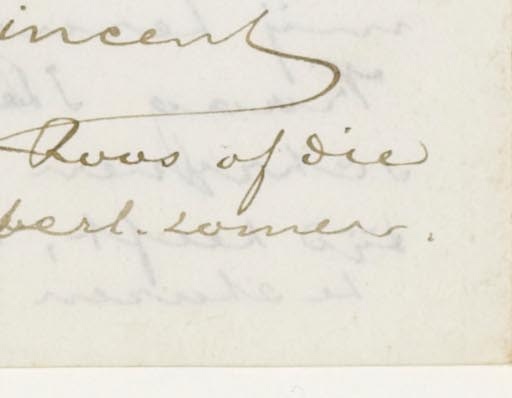 incent
Roos of die
berl. zomer.